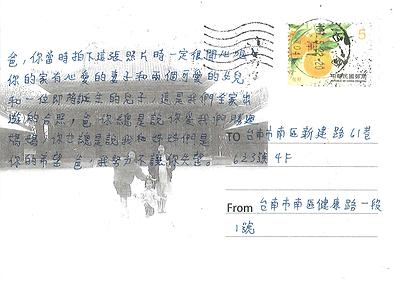 爸,你當時拍下這張照片時一定很開心吧
你的家有心愛的妻子和兩個可愛的女兒
和一位即將誕生的兒子,這是我們全家出
遊的合照,爸 你總是說你愛我們跟
媽媽,你也總是說我和姊姊們是
你的希望 爸,我努力不讓你失望。
5
中華民國郵票
TO 台南市南區新建路61巷
623號4F
From 台南市南區健康路一段
1號